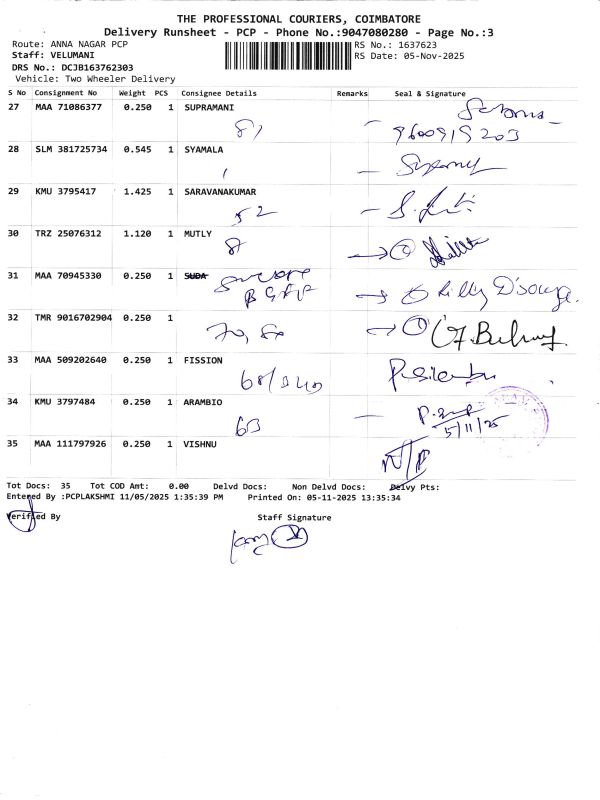 THE PROFESSIONAL COURIERS, COIMBATORE
Delivery Runsheet - PCP - Phone No.:9047080280 - Page No.:3
Route: ANNA NAGAR PCP RS No.: 1637623
Staff: VELUMANI RS Date: 05-Nov-2025
DRS No.: DCJB163762303
Vehicle: Two Wheeler Delivery
S No Consignment No Weight PCS Consignee Details Remarks Seal & Signature
27 MAA 71086377 0.250 1 SUPRAMANI
9600919203
28 SLM 381725734 0.545 1 SYAMALA
29 KMU 3795417 1.425 1 SARAVANAKUMAR
52
30 TRZ 25076312 1.120 1 MUTLY
8
31 MAA 70945330 0.250 1 SUDA
Lilly D'souza.
32 TMR 9016702904 0.250 1
33 MAA 509202640 0.250 1 FISSION
34 KMU 3797484 0.250 1 ARAMBIO
5/11/25
35 MAA 111797926 0.250 1 VISHNU
Tot Docs: 35 Tot COD Amt: 0.00 Delvd Docs: Non Delvd Docs: Delvy Pts:
Entered By :PCPLAKSHMI 11/05/2025 1:35:39 PM Printed On: 05-11-2025 13:35:34
Verified By Staff Signature